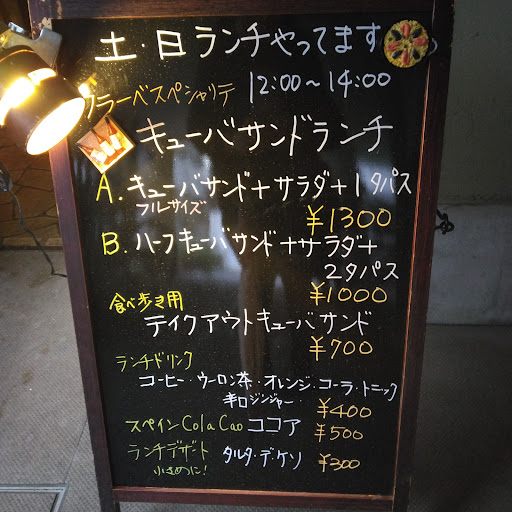 土・日ランチやってます
クラーベスペシャリテ 12:00〜14:00
キューバサンドランチ
A. キューバサンド+サラダ+1タパス
フルサイズ
¥1300
B. ハーフキューバサンド+サラダ+
2タパス
¥1000
食べ歩き用
テイクアウトキューバサンド
¥700
ランチドリンク
コーヒー・ウーロン茶・オレンジ・コーラ・トニック
辛口ジンジャー ¥400
スペイン Cola Cao ココア ¥500
ランチデザート タルタ・デ・ケソ ¥300
小さめに!